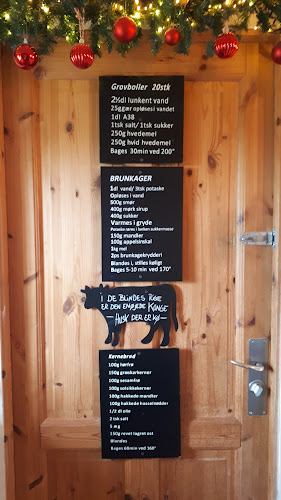 Grovboller 20stk
2½dl lunkent vand
25g gær opløses i vandet
1dl A38
1tsk salt/1tsk sukker
250g hvedemel
250g hvid hvedemel
Bages 30min ved 200°
BRUNKAGER
1dl vand/ 3tsk potaske
Opløses i vand
500g smør
400g mørk sirup
400g sukker
Varmes i gryde
Potaske røres i lunken sukkermasse
150g mandler
100g appelsinskal
1kg mel
2ps brunkagekrydderi
Blandes i, stilles køligt
Bages 5-10 min ved 170°
I DE BLINDES RIGE
ER DEN ENØJEDE KONGE
- HUSK DER ER KO -
Kernebrød
100g hørfrø
150g græskarkerner
100g sesamfrø
100g solsikkekerner
100g hakkede mandler
100g hakkede hasselnødder
1/2 dl olie
2 tsk salt
5 æg
150g revet lagret ost
Blandes
Bages 60min ved 160°